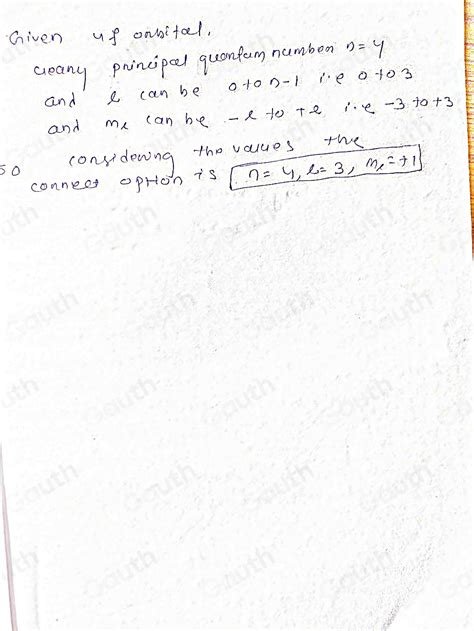 Given 4f orbital,
cleany principal quantum number n=4
and l can be 0 to n-1 i.e 0 to 3
and ml can be -l to +l i.e -3 to +3
so considering the values the
connect option is n= 4, l= 3, ml=+1
Gauth